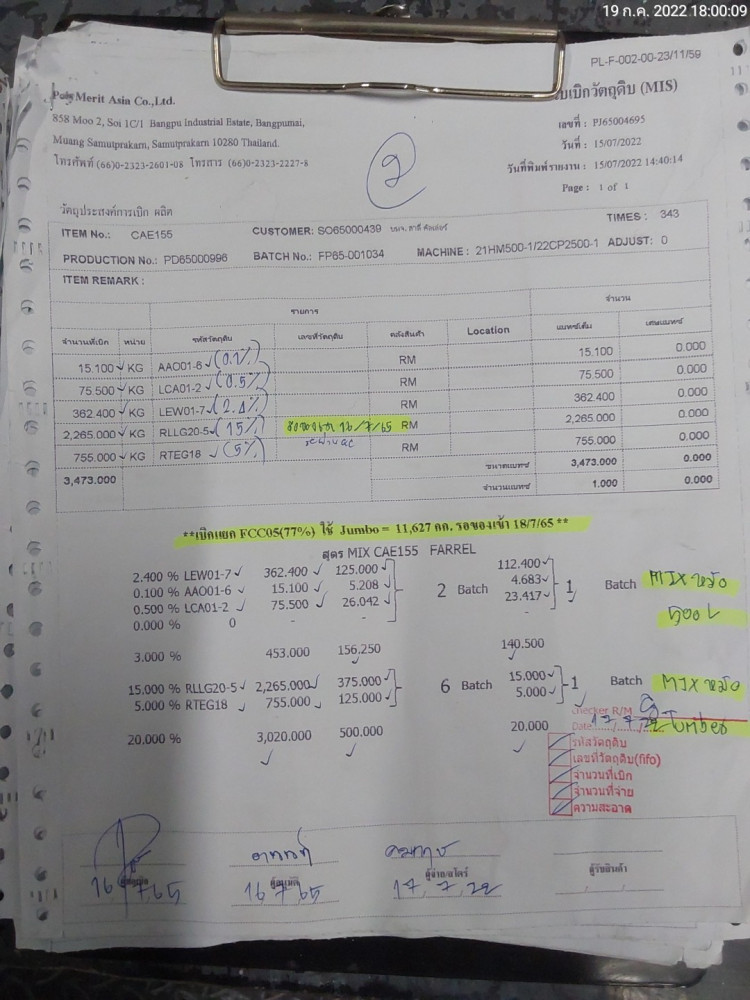 19 ก.ค. 2022 18:00:09
PL-F-002-00-23/11/59
Poly Merit Asia Co.,Ltd.
ใบเบิกวัตถุดิบ (MIS)
858 Moo 2, Soi 1C/1 Bangpu Industrial Estate, Bangpumai,
Muang Samutprakarn, Samutprakarn 10280 Thailand.
โทรศัพท์ (66)0-2323-2601-08 โทรสาร (66)0-2323-2227-8
เลขที่ : PJ65004695
วันที่ : 15/07/2022
วันที่พิมพ์รายงาน : 15/07/2022 14:40:14
Page : 1 of 1
2
วัตถุประสงค์การเบิก ผลิต
ITEM No.: CAE155 CUSTOMER: SO65000439 TIMES : 343
PRODUCTION No.: PD65000996 BATCH No.: FP65-001034 MACHINE : 21HM500-1/22CP2500-1 ADJUST: 0
ITEM REMARK :
รายการ จำนวน
จำนวนที่เบิก หน่วย รหัสวัตถุดิบ เลขที่วัตถุดิบ คลังสินค้า Location แบทซ์เต็ม เศษแบทซ์
15.100 KG AAO01-6 (0.1%) RM 15.100 0.000
75.500 KG LCA01-2 (0.5%) RM 75.500 0.000
362.400 KG LEW01-7 (2.4%) RM 362.400 0.000
2,265.000 KG RLLG20-5 (15%) 16/7/65 RM 2,265.000 0.000
755.000 KG RTEG18 (5%) RM 755.000 0.000
3,473.000 ขนาดแบทซ์ 3,473.000 0.000
จำนวนแบทซ์ 1.000 0.000
**เบิกแยก FCC05(77%) ใช้ Jumbo = 11,627 กก. รอของเข้า 18/7/65 **
สูตร MIX CAE155 FARREL
2.400 % LEW01-7 362.400 125.000 112.400
0.100 % AAO01-6 15.100 5.208 2 Batch 4.683 1 Batch MIX หม้อ
0.500 % LCA01-2 75.500 26.042 23.417
0.000 % 0 - - -
3.000 % 453.000 156.250 140.500
15.000 % RLLG20-5 2,265.000 375.000 6 Batch 15.000 1 Batch MIX หม้อ
5.000 % RTEG18 755.000 125.000 5.000
Jumbo
20.000 % 3,020.000 500.000 20.000
Checker R/M
Date 17, 7, 22
รหัสวัตถุดิบ
เลขที่วัตถุดิบ(fifo)
จำนวนที่เบิก
จำนวนที่จ่าย
ความสะอาด
ผู้จ่าย/สโตร์ ผู้รับสินค้า
16 7 65 16 7 65 17, 7, 22